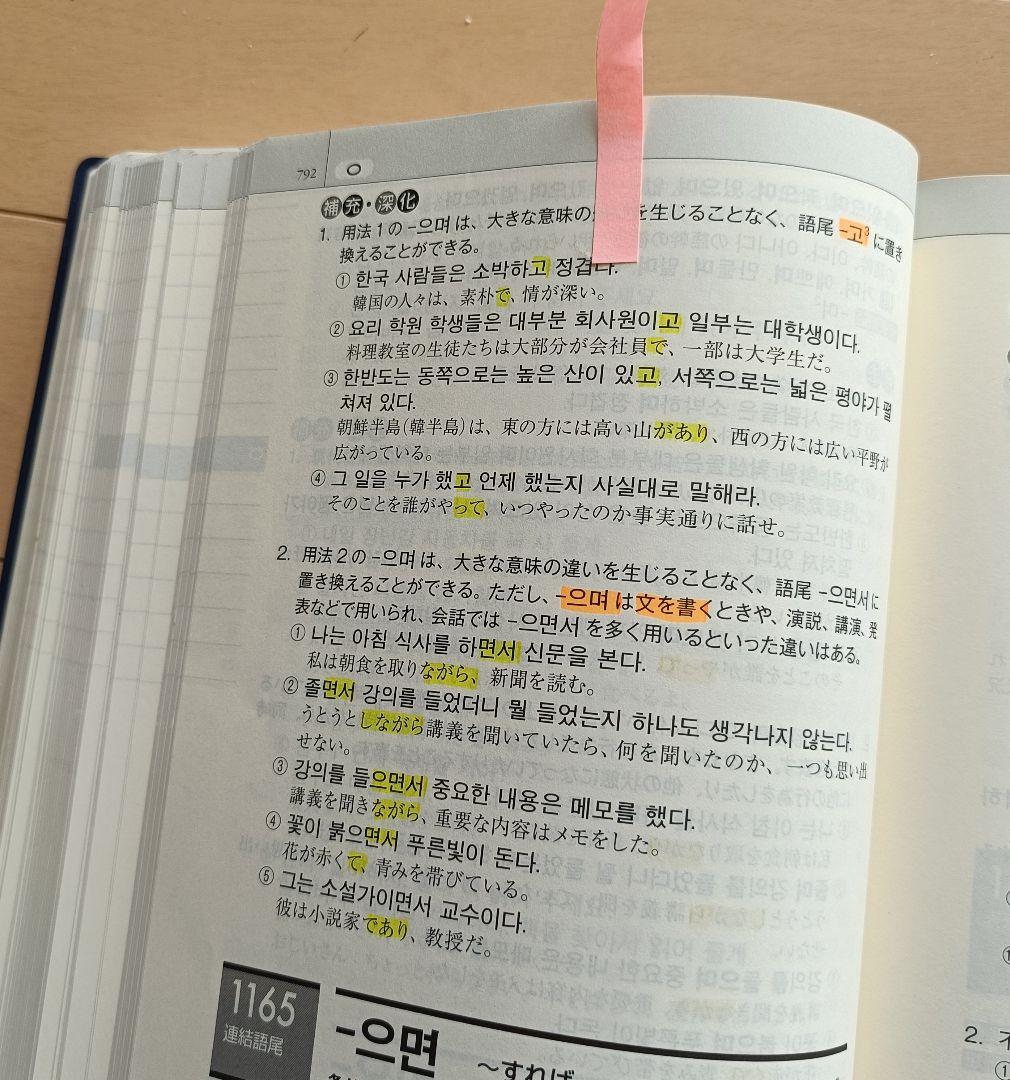 792 ㅇ
補充・深化
1. 用法1の -으며 は、大きな意味の を生じることなく、語尾 -고³ に置き
換えることができる。
① 한국 사람들은 소박하고 정겹다.
韓国の人々は、素朴で、情が深い。
② 요리 학원 학생들은 대부분 회사원이고 일부는 대학생이다.
料理教室の生徒たちは大部分が会社員で、一部は大学生だ。
③ 한반도는 동쪽으로는 높은 산이 있고, 서쪽으로는 넓은 평야가 펼
쳐져 있다.
朝鮮半島(韓半島)は、東の方には高い山があり、西の方には広い平野が
広がっている。
④ 그 일을 누가 했고 언제 했는지 사실대로 말해라.
そのことを誰がやって、いつやったのか事実通りに話せ。
2. 用法2の -으며 は、大きな意味の違いを生じることなく、語尾 -으면서 に
置き換えることができる。ただし、-으며 は文を書くときや、演説、講演、発
表などで用いられ、会話では -으면서 を多く用いるといった違いはある。
① 나는 아침 식사를 하면서 신문을 본다.
私は朝食を取りながら、新聞を読む。
② 졸면서 강의를 들었더니 뭘 들었는지 하나도 생각나지 않는다.
うとうとしながら講義を聞いていたら、何を聞いたのか、一つも思い出
せない。
③ 강의를 들으면서 중요한 내용은 메모를 했다.
講義を聞きながら、重要な内容はメモをした。
④ 꽃이 붉으면서 푸른빛이 돈다.
花が赤くて、青みを帯びている。
⑤ 그는 소설가이면서 교수이다.
彼は小説家であり、教授だ。
1165
連結語尾
-으면
～すれば
2.